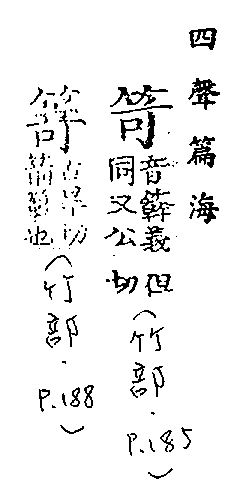 四聲篇海
笴音簳義同又公但切(竹部.P.185)
古旱切箭簳也(竹部.P.188)